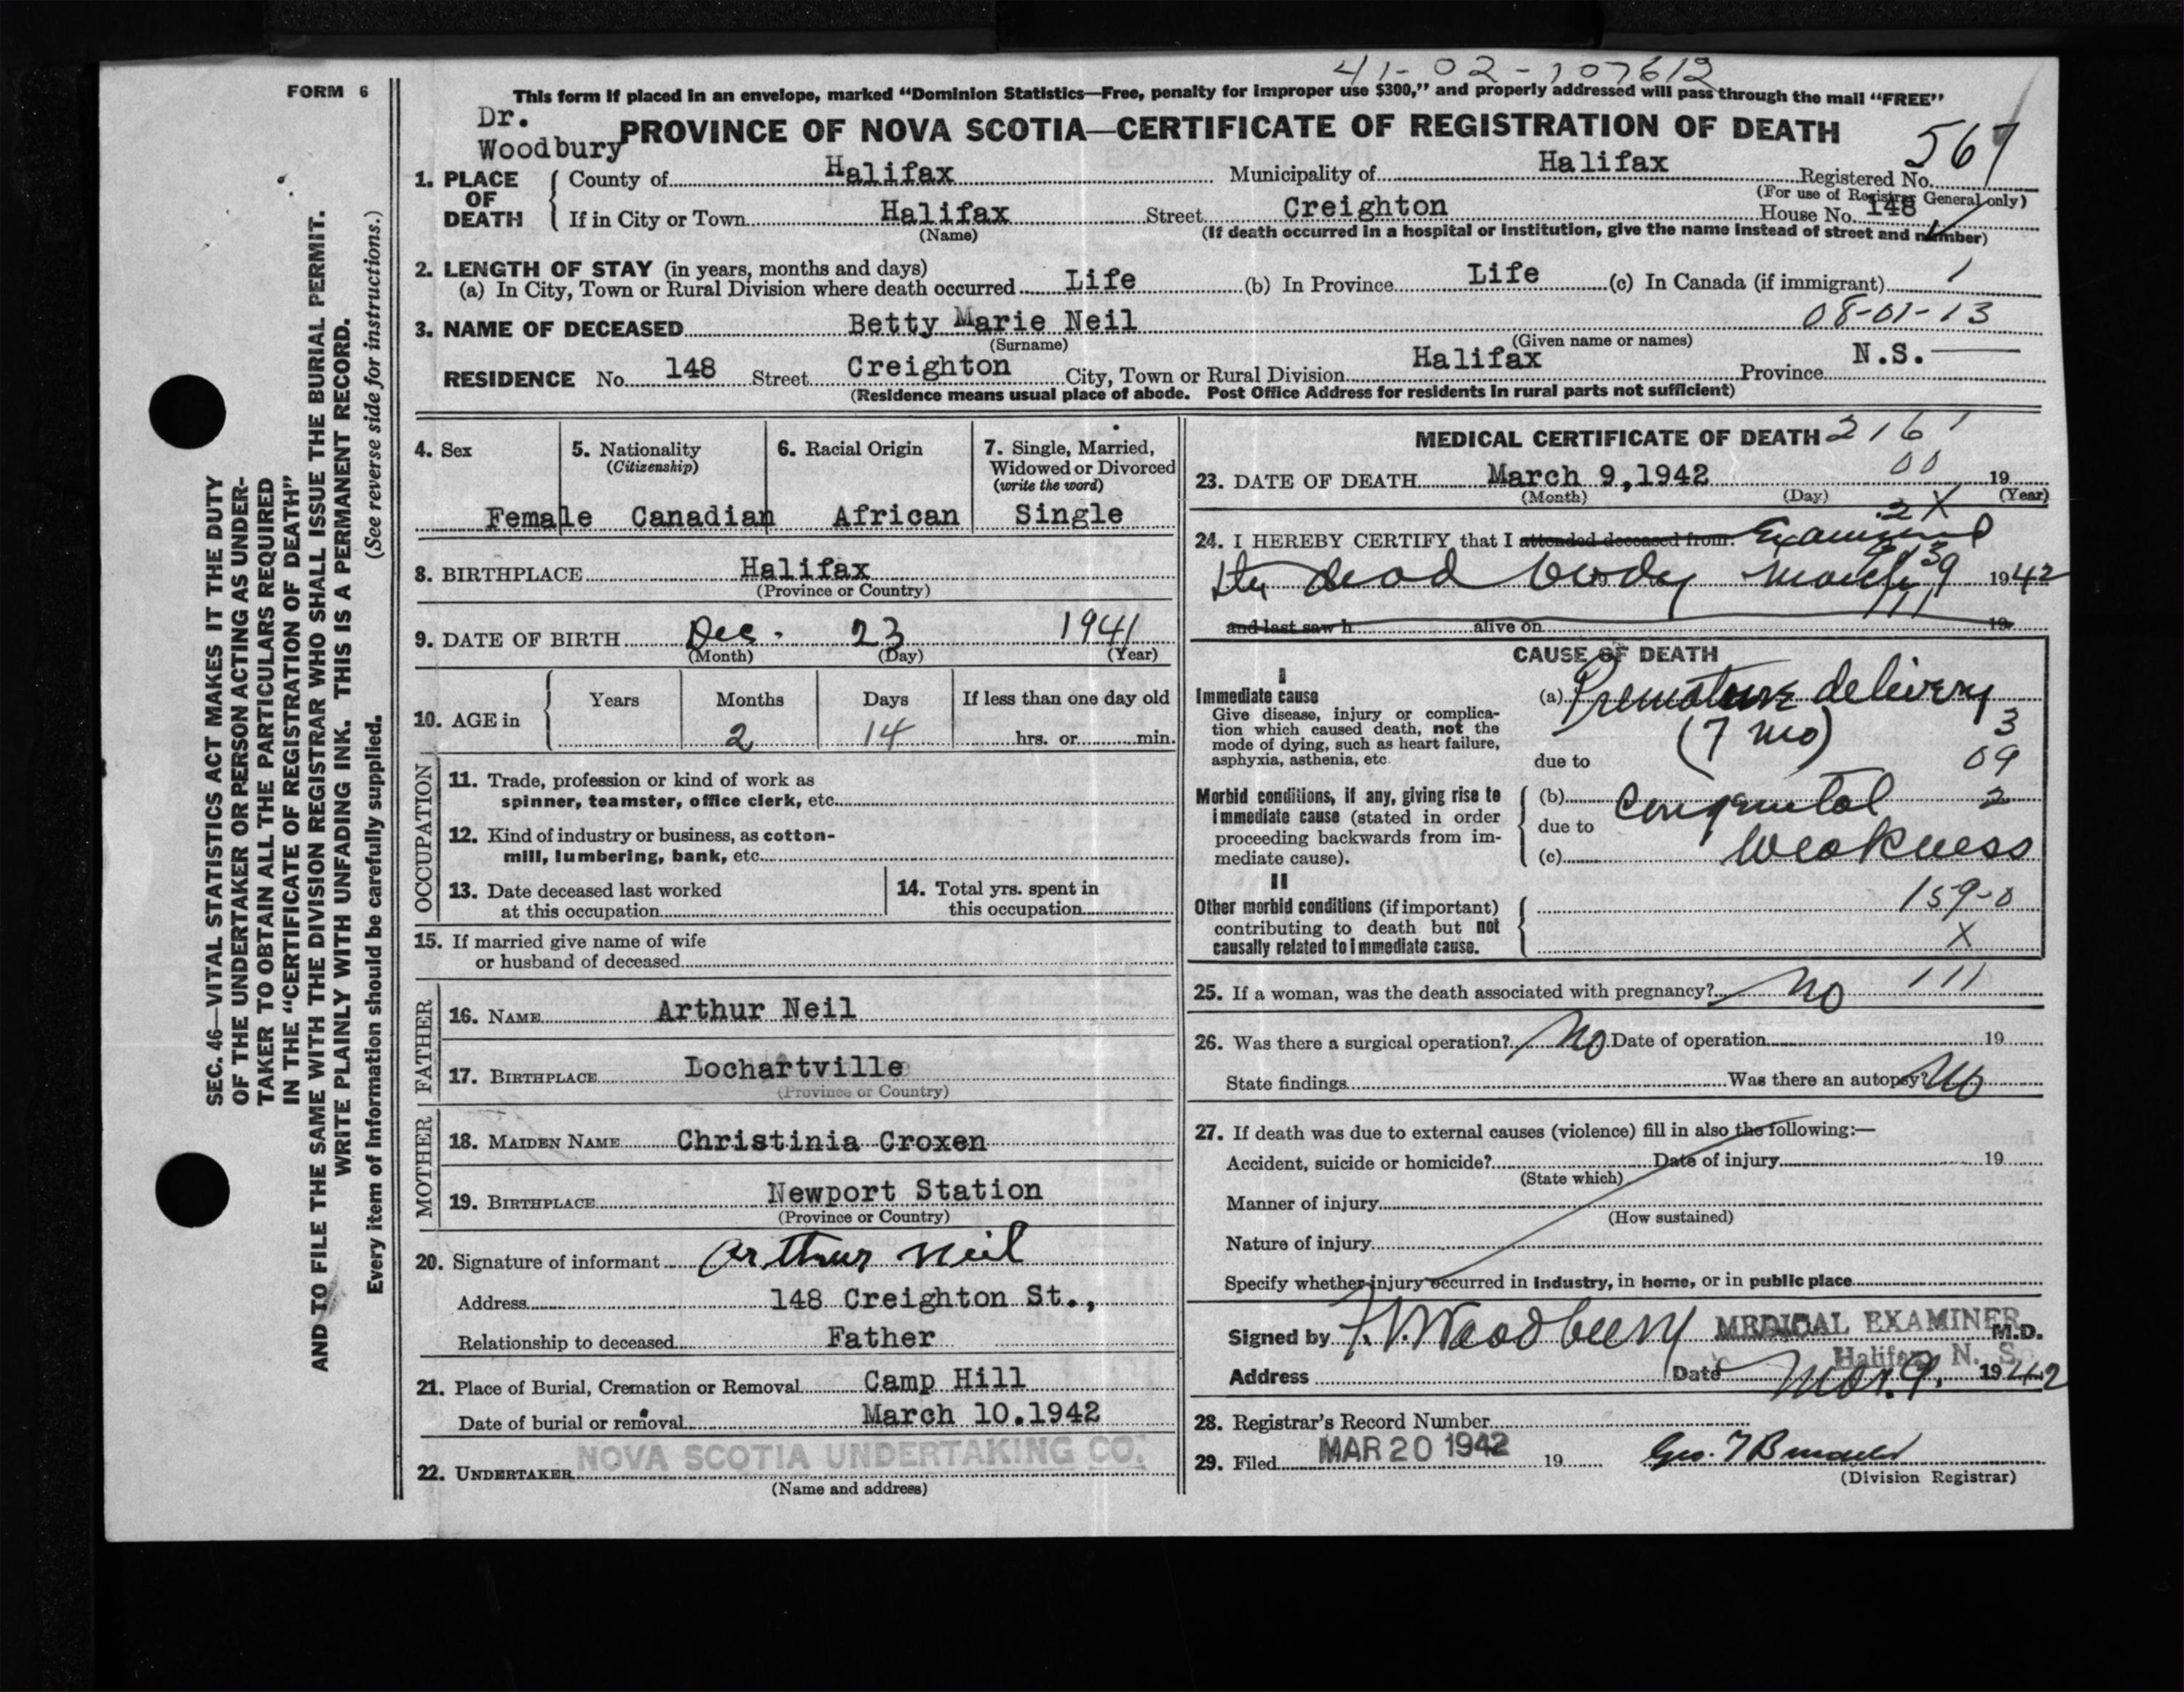 41-02-107612
FORM 6
This form if placed in an envelope, marked "Dominion Statistics—Free, penalty for improper use $300," and properly addressed will pass through the mail "FREE"
Dr.
Woodbury
PROVINCE OF NOVA SCOTIA—CERTIFICATE OF REGISTRATION OF DEATH
567
1. PLACE OF DEATH
County of Halifax Municipality of Halifax Registered No.
(For use of Registrar General only)
If in City or Town Halifax Street Creighton House No. 148
(Name) (If death occurred in a hospital or institution, give the name instead of street and number)
2. LENGTH OF STAY (in years, months and days)
(a) In City, Town or Rural Division where death occurred Life (b) In Province Life (c) In Canada (if immigrant) 1
3. NAME OF DECEASED Betty Marie Neil 08-01-13
(Surname) (Given name or names)
RESIDENCE No. 148 Street Creighton City, Town or Rural Division Halifax Province N.S.
(Residence means usual place of abode. Post Office Address for residents in rural parts not sufficient)
4. Sex 5. Nationality (Citizenship) 6. Racial Origin 7. Single, Married, Widowed or Divorced (write the word)
Female Canadian African Single
8. BIRTHPLACE Halifax
(Province or Country)
9. DATE OF BIRTH Dec. 23 1941
(Month) (Day) (Year)
10. AGE in Years Months Days If less than one day old
2 14 hrs. or min.
OCCUPATION
11. Trade, profession or kind of work as
spinner, teamster, office clerk, etc.
12. Kind of industry or business, as cotton-
mill, lumbering, bank, etc.
13. Date deceased last worked
at this occupation
14. Total yrs. spent in
this occupation
15. If married give name of wife
or husband of deceased
FATHER
16. NAME Arthur Neil
17. BIRTHPLACE Lochartville
(Province or Country)
MOTHER
18. MAIDEN NAME Christinia Croxen
19. BIRTHPLACE Newport Station
(Province or Country)
20. Signature of informant Arthur Neil
Address 148 Creighton St.,
Relationship to deceased Father
21. Place of Burial, Cremation or Removal Camp Hill
Date of burial or removal March 10.1942
22. UNDERTAKER NOVA SCOTIA UNDERTAKING CO.
(Name and address)
MEDICAL CERTIFICATE OF DEATH 2161
00
23. DATE OF DEATH March 9,1942 19
(Month) (Day) (Year)
2X
24. I HEREBY CERTIFY that I attended deceased from: Examined
the dead body March 9 1942
and last saw h alive on 19
CAUSE OF DEATH
I
Immediate cause (a) Premature delivery
Give disease, injury or complica-
tion which caused death, not the
mode of dying, such as heart failure,
asphyxia, asthenia, etc.
(7 mo) 3
due to 09
Morbid conditions, if any, giving rise to
immediate cause (stated in order
proceeding backwards from im-
mediate cause).
(b) Congenital 2
due to
(c) Weakness
II
Other morbid conditions (if important)
contributing to death but not
causally related to immediate cause.
159-0
X
25. If a woman, was the death associated with pregnancy? No 111
26. Was there a surgical operation? No Date of operation 19
State findings Was there an autopsy? No
27. If death was due to external causes (violence) fill in also the following:—
Accident, suicide or homicide? Date of injury 19
(State which)
Manner of injury
(How sustained)
Nature of injury
Specify whether injury occurred in industry, in home, or in public place
Signed by Woodbury MEDICAL EXAMINER M.D.
Halifax N. S.
Address Date Mar. 9, 1942
28. Registrar's Record Number
29. Filed MAR 20 1942 19
(Division Registrar)
SEC. 46—VITAL STATISTICS ACT MAKES IT THE DUTY
OF THE UNDERTAKER OR PERSON ACTING AS UNDER-
TAKER TO OBTAIN ALL THE PARTICULARS REQUIRED
IN THE "CERTIFICATE OF REGISTRATION OF DEATH"
AND TO FILE THE SAME WITH THE DIVISION REGISTRAR WHO SHALL ISSUE THE BURIAL PERMIT.
WRITE PLAINLY WITH UNFADING INK. THIS IS A PERMANENT RECORD.
Every item of information should be carefully supplied. (See reverse side for instructions.)